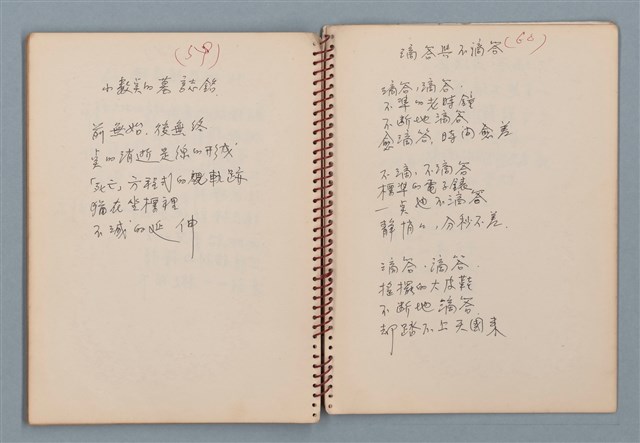 (59)
小數點的墓誌銘
前無始、後無終
點的消逝是線的形成
「死亡」方程式的軌跡
猶在坐標裡
不滅的延伸
(60)
滴答與不滴答
滴答,滴答.
不準的老時鐘
不斷地滴答
愈滴答,時間愈差
不滴,不滴答
標準的電子錶
一点也不滴答
靜悄悄,分秒不差.
滴答.滴答.
搖擺的大皮鞋
不斷地滴答
却踏不上天國來